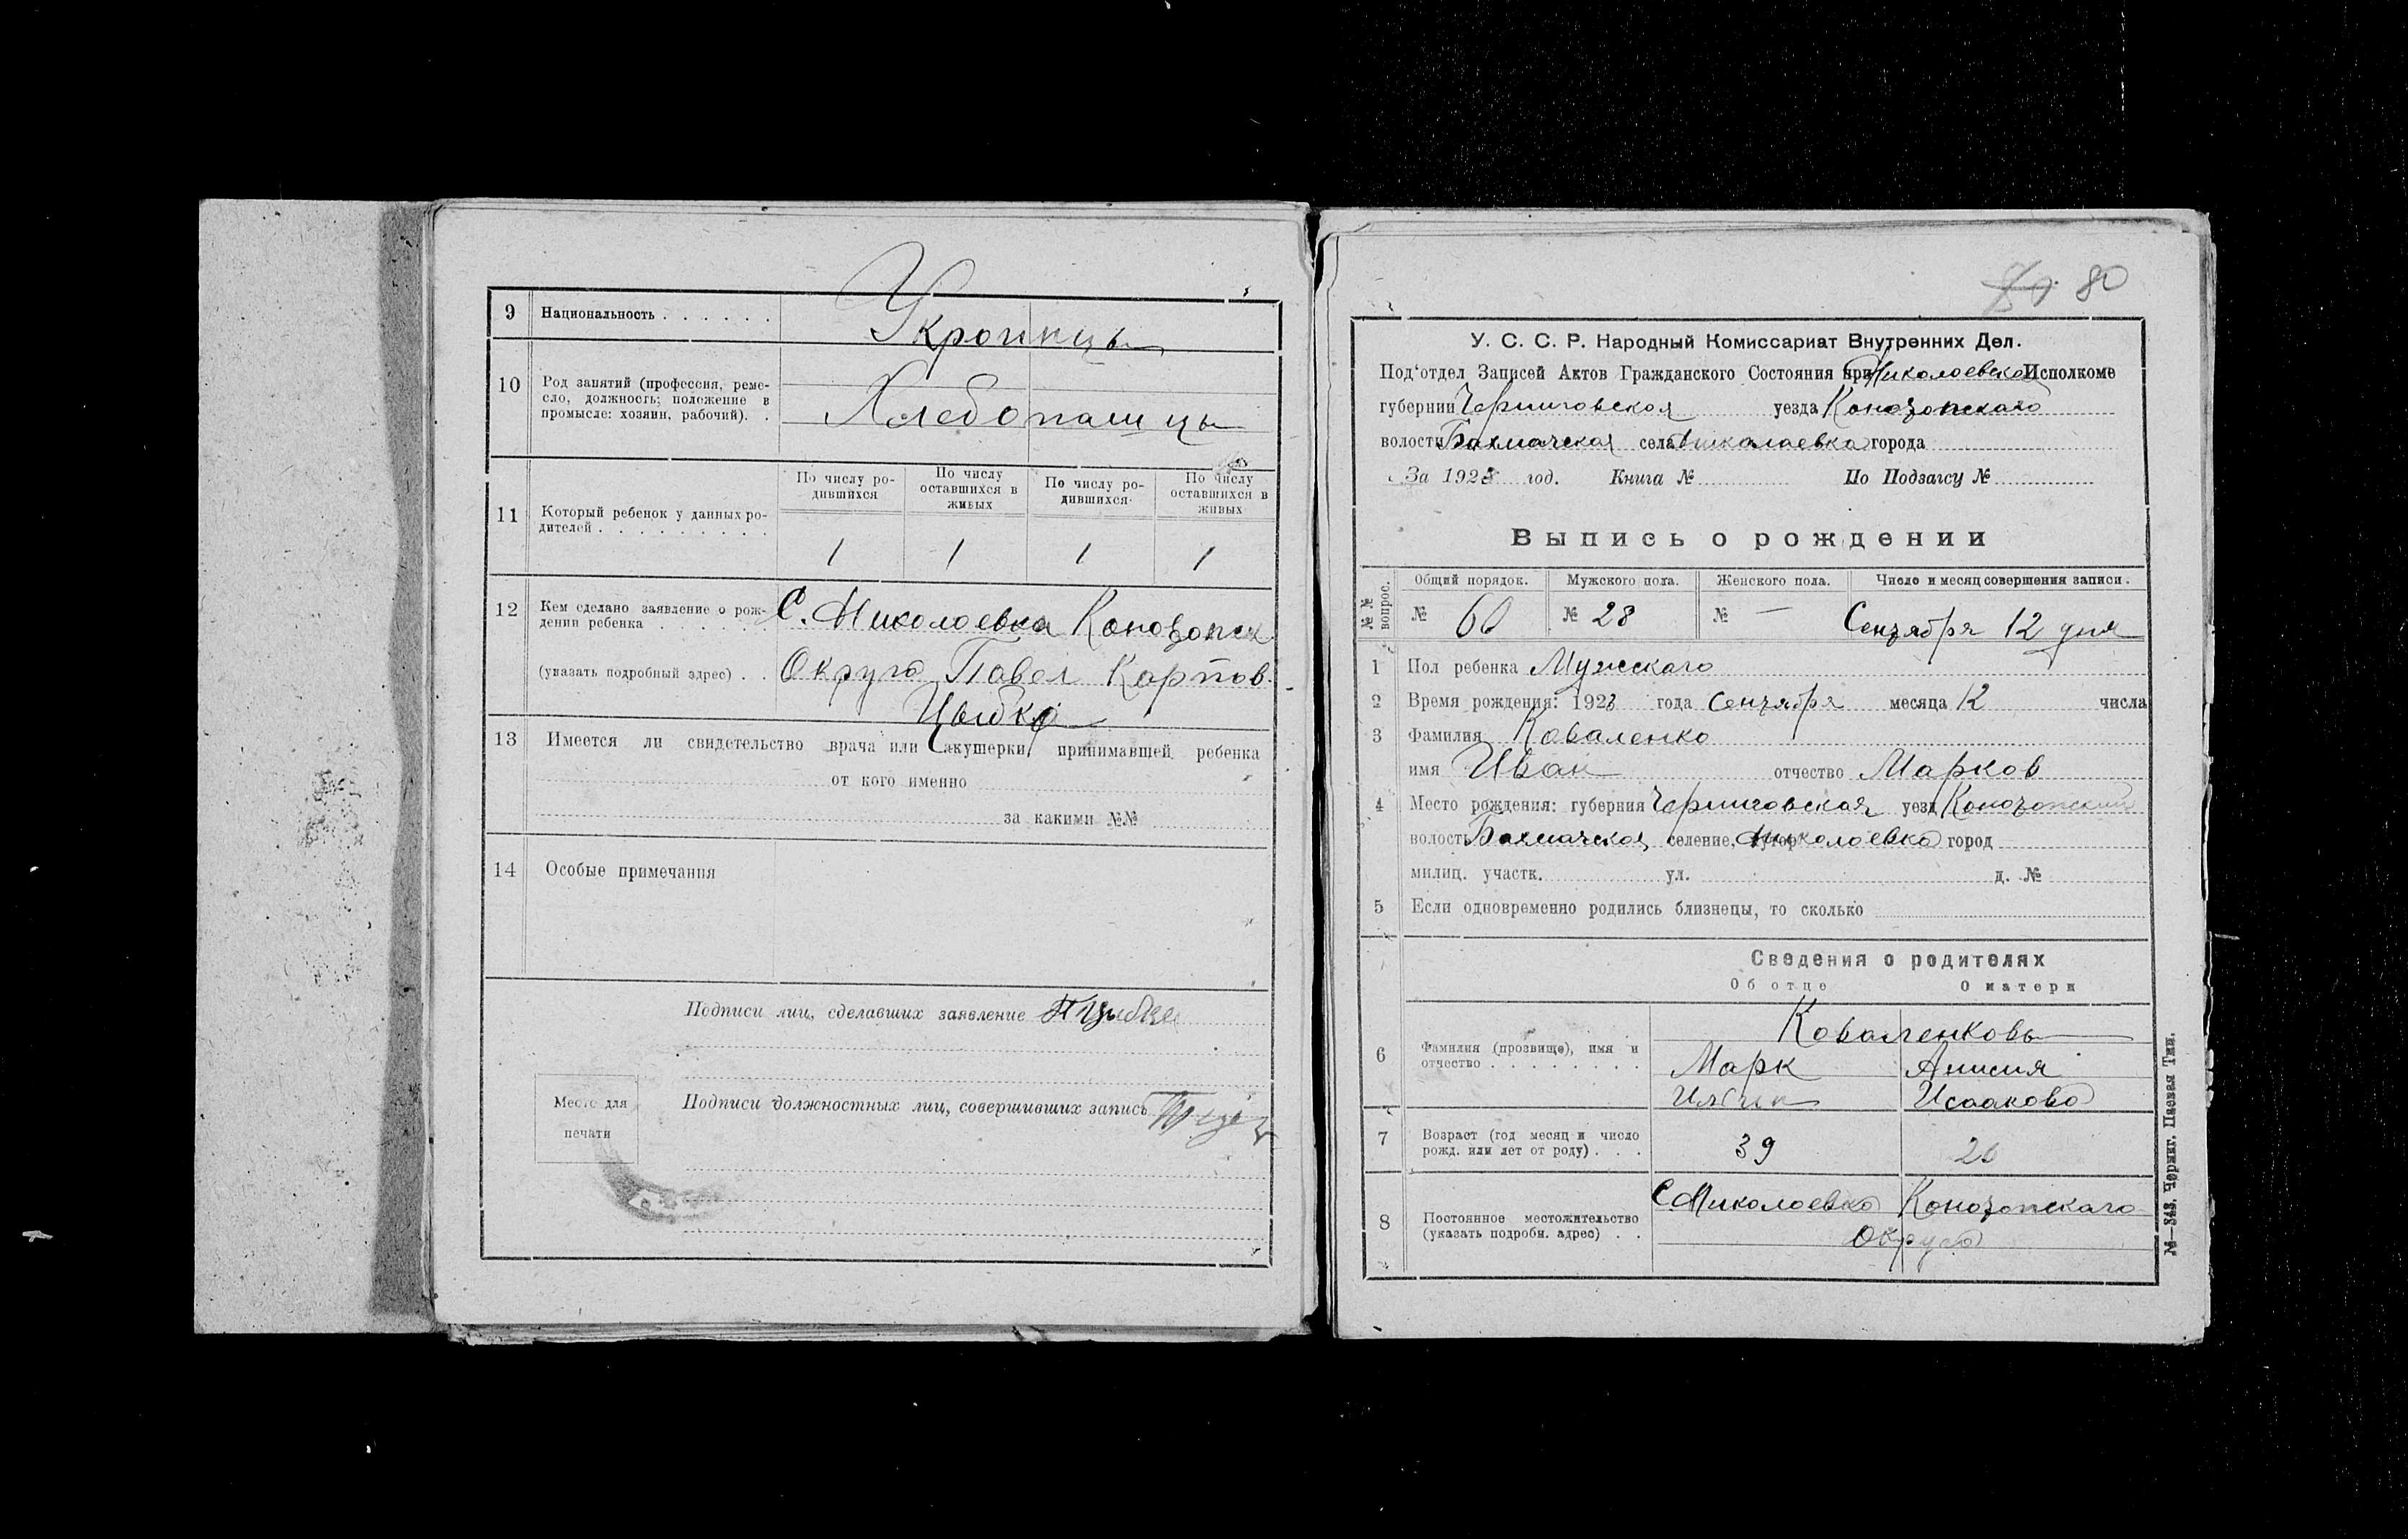 9 Национальность . . . . . .
Украинцы
10 Род занятий (профессия, реме-
сло, должность; положение в
промысле: хозяин, рабочий). .
Хлебопашцы
11 Который ребенок у данных ро-
дителей . . . . . . . . .
По числу ро-
дившихся
По числу
оставшихся в
живых
По числу ро-
дившихся
По числу
оставшихся в
живых
1 1 1 1
12 Кем сделано заявление о рож-
дении ребенка . . . . . .
(указать подробный адрес) . .
С. Николоевка Конотопск
Округа Павел Карпов.
Цыбко
13 Имеется ли свидетельство врача или акушерки, принимавшей ребенка
от кого именно
за какими №№
14 Особые примечания
Подписи лиц, сделавших заявление П Цыбко
Подписи должностных лиц, совершивших запись
Место для
печати
80
У. С. С. Р. Народный Комиссариат Внутренних Дел.
Под‘отдел Записей Актов Гражданского Состояния при Николоевском Исполкоме
губернии Черниговская уезда Конотопскаго
волости Бахмачская села Николаевка города
За 1923 год. Книга № По Подзагсу №
Выпись о рождении
№№ вопрос.
Общий порядок. Мужского пола. Женского пола. Число и месяц совершения записи.
№ 60 № 28 № — Сентября 12 дня
1 Пол ребенка Мужскаго
2 Время рождения: 1923 года Сентября месяца 12 числа
3 Фамилия Коваленко
имя Иван отчество Марков
4 Место рождения: губерния Черниговская уезд Конотопский
волость Бахмачская селение, хутор Николоевка город
милиц. участк. ул. д. №
5 Если одновременно родились близнецы, то сколько
Сведения о родителях
Об отце О матери
6 Фамилия (прозвище), имя и
отчество . . . . . . . .
Коваленковы
Марк Анисия
Ильин Исаакова
7 Возраст (год месяц и число
рожд. или лет от роду) . . .
39 26
8 Постоянное местожительство
(указать подробн. адрес) . .
С Николоевка Конотопскаго
Округа
№—343. Черниг. Паевая Тип.